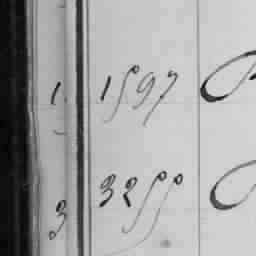 1. 1597
3 3255